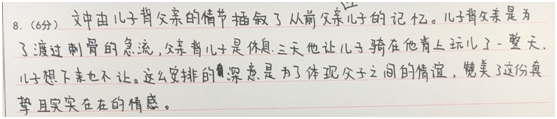 8.(6分) 文中由儿子背父亲的情节插叙了从前父亲让儿子的记忆。儿子背父亲是为
了渡过刺骨的急流,父亲背儿子是休息三天他让儿子骑在他肩上玩儿了一整天,
儿子想下来也不让。这么安排的深意是为了体现父子之间的情谊,赞美了这份真
挚且实实在在的情感。